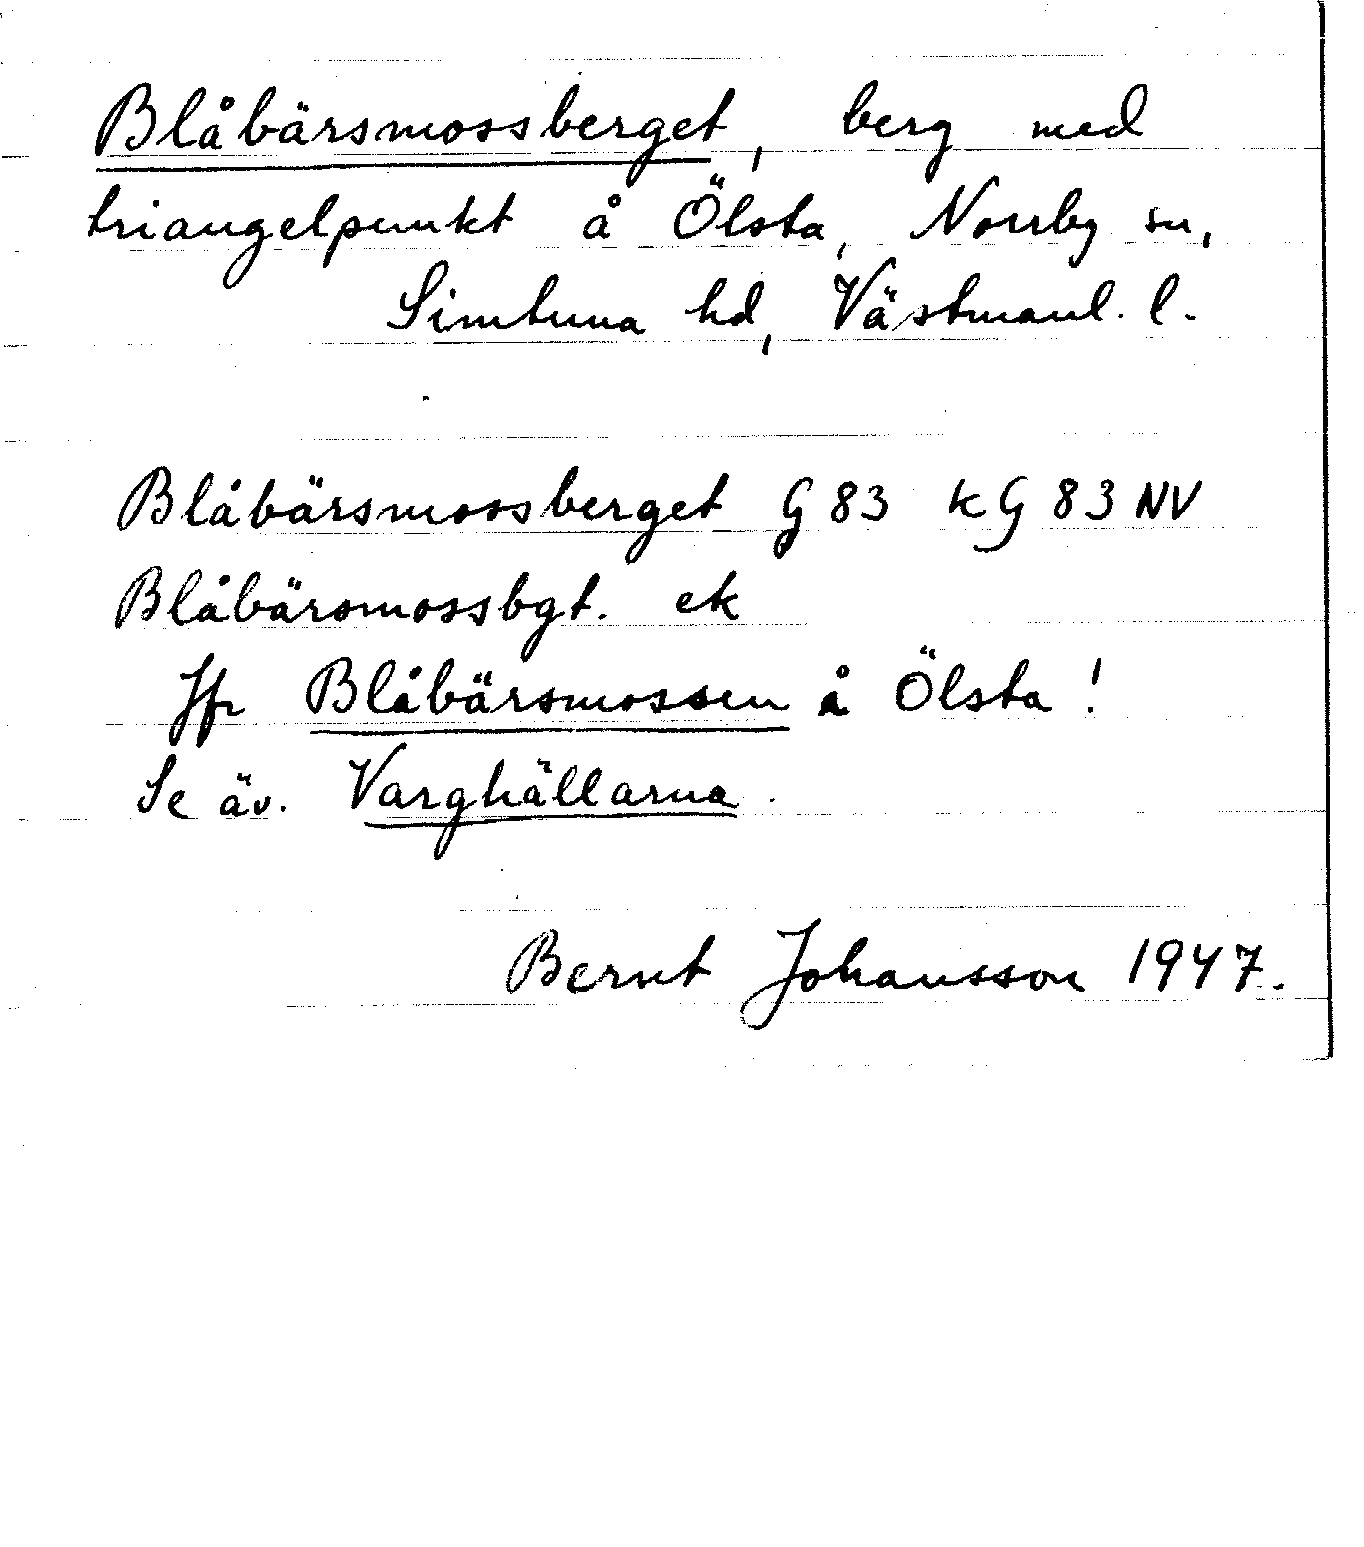 Blåbärsmossberget, berg med
triangelpunkt å Ölsta, Norrby sn,
Simtuna hd, Västmanl. l.
Blåbärsmossberget G 83 kG 83 NV
Blåbärsmossbgt. ek
Jfr Blåbärsmossen å Ölsta!
Se äv. Varghällarna.
Bernt Johansson 1947.